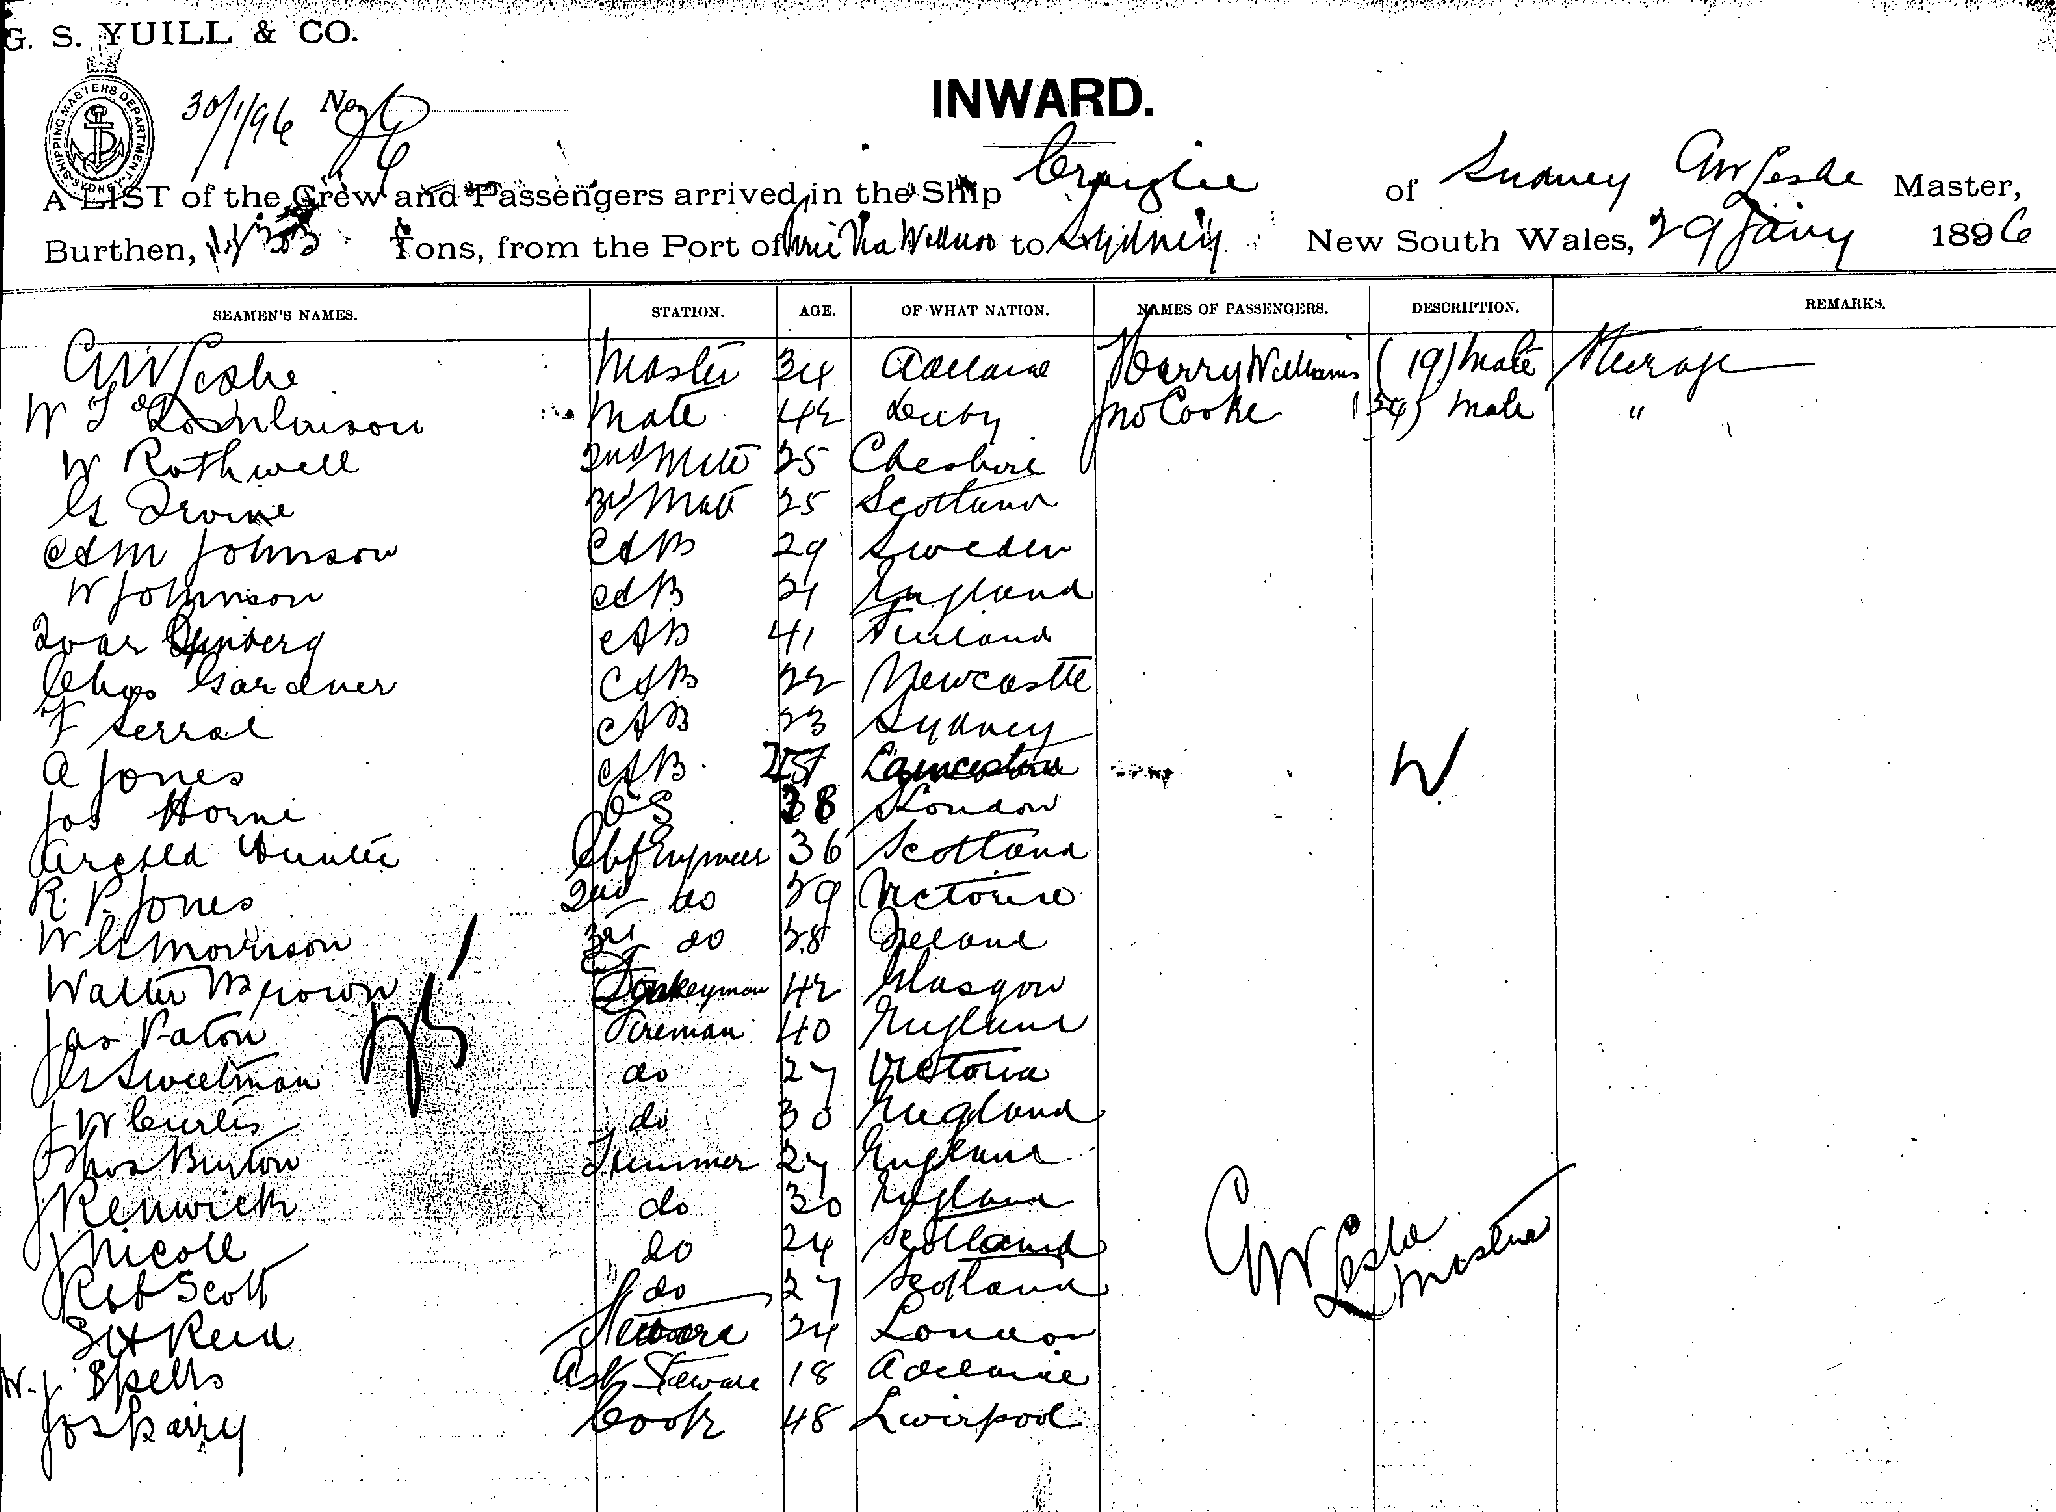 G. S. YUILL & CO.
SHIPPING MASTERS DEPARTMENT SYDNEY
30/1/96 No
INWARD.
A LIST of the Crew and Passengers arrived in the Ship Craiglee of Sydney GW Leslie Master,
Burthen, Tons, from the Port of via to Sydney New South Wales, 29 Jany 1896
SEAMEN'S NAMES. STATION. AGE. OF WHAT NATION. NAMES OF PASSENGERS. DESCRIPTION. REMARKS.
GW Leslie Master 34 Adelaide Harry Williams (19) Male Steerage
W T Tomlinson Mate 42 Derby Jno Cooke Male "
W Rothwell 2nd Mate 25 Cheshire
G Irvine 3rd Mate 25 Scotland
AM Johnson AB 29 Sweden
W Johnson AB 21 England
Ivar AB 41 Finland
Chas Gardner AB 22 Newcastle
F Serral AB 23 Sydney
A Jones AB Launceston
Jas Horne OS London
Archld Hunter Chf Engineer 36 Scotland
R. P. Jones 2nd do 29 Victoria
W G Morrison 3rd do 28 Ireland
Walter Brown Donkeyman 42 Glasgow
Jas Paton Fireman 40 England
G Sweetman do 27 Victoria
J W Curtis do 30 England
Thos Burton Trimmer 27 England
J Renwick do 30 England
J Nicoll do 24 Scotland
Rob Scott do 27 Scotland
S H Reid Steward 24 London
W. J. Spells Ast Steward 18 Adelaide
Jos Barry Cook 48 Liverpool
GW Leslie
Master